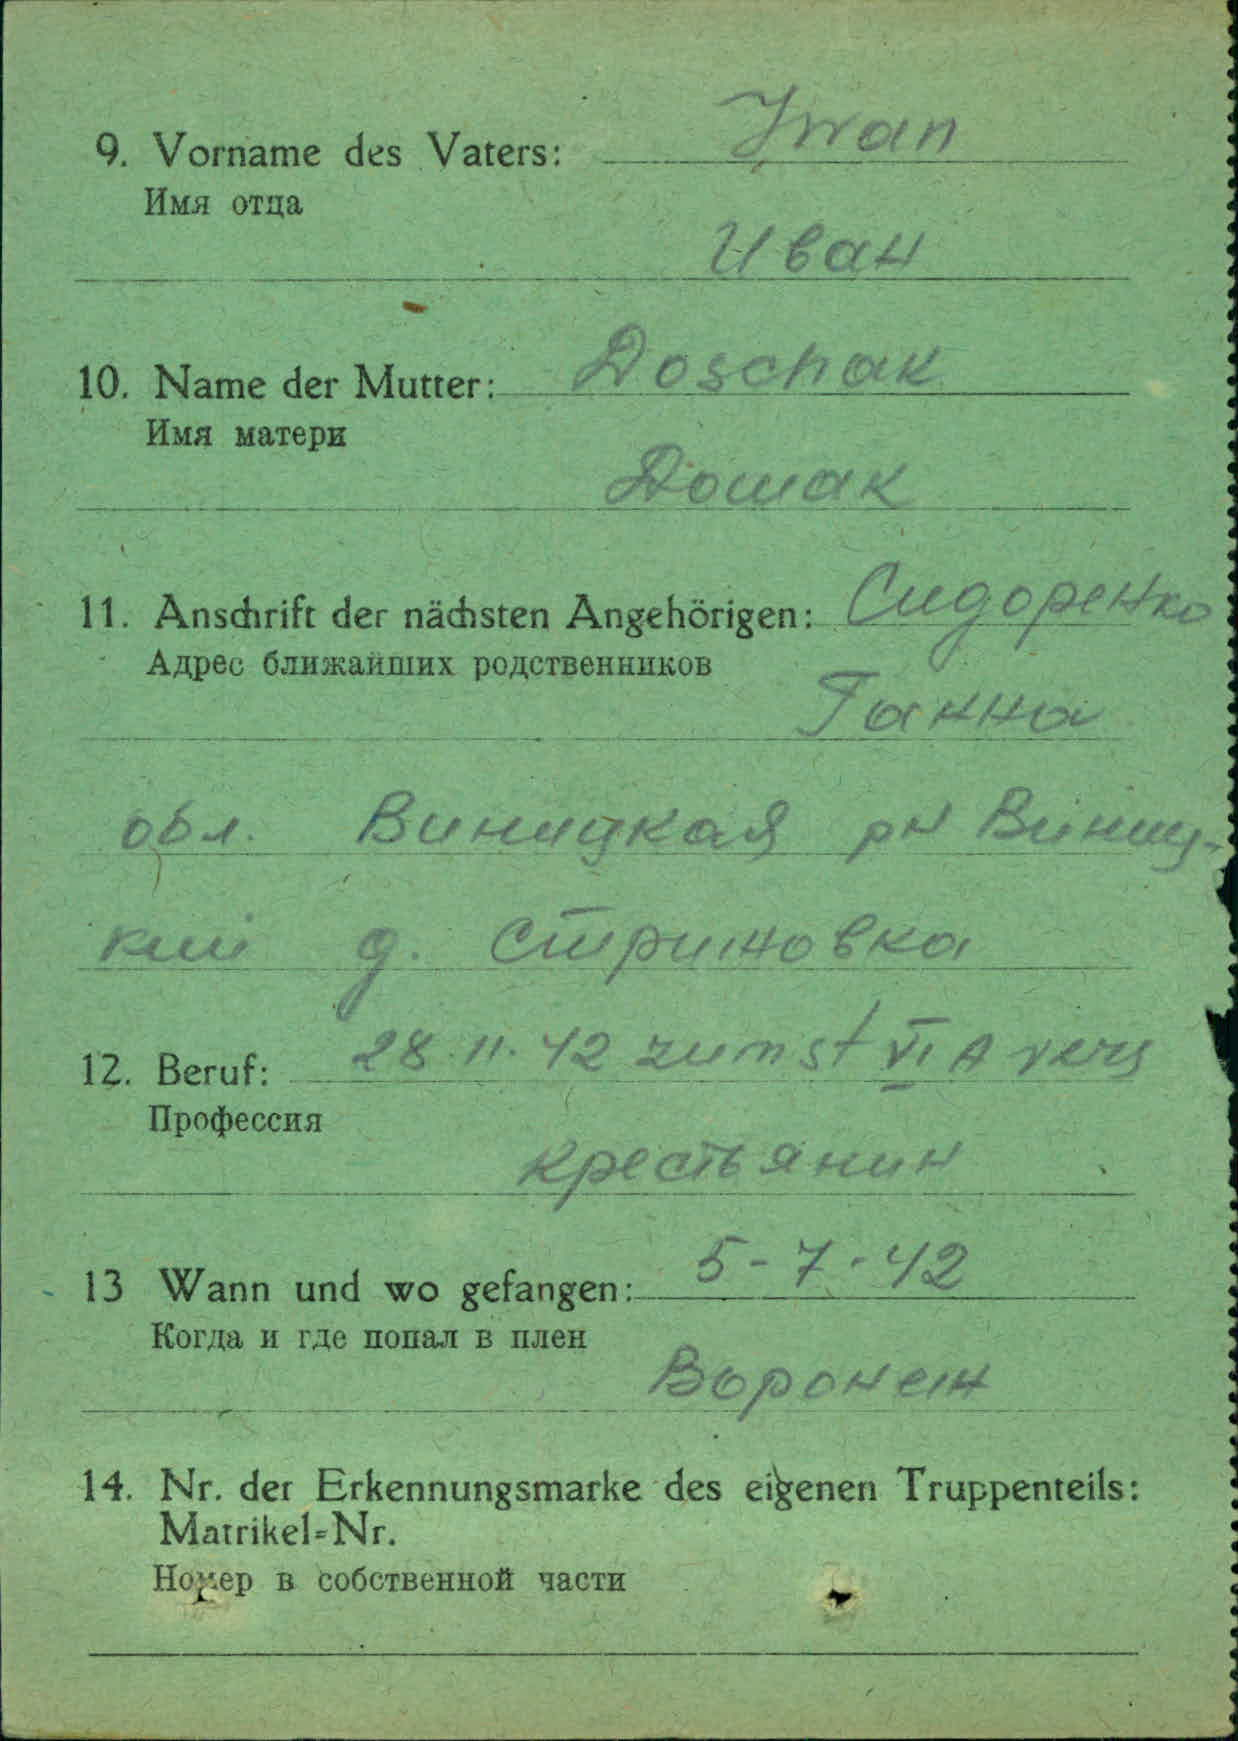 9. Vorname des Vaters: Iwan
Имя отца
Иван
10. Name der Mutter: Doschak
Имя матери
Дошак
11. Anschrift der nächsten Angehörigen: Сидоренко
Адрес ближайших родственников
Ганна
обл. Виницкая рн Виниц-
кий д. Стрижовка
12. Beruf: 28.11.42 zum St VI A vers
Профессия
крестьянин
13 Wann und wo gefangen: 5-7-42
Когда и где попал в плен
Воронеж
14. Nr. der Erkennungsmarke des eigenen Truppenteils:
Matrikel-Nr.
Номер в собственной части